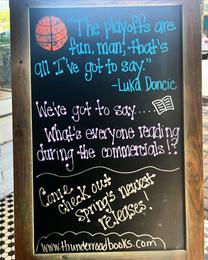 "The playoffs are
fun, man, that's
all I've got to say."
-Luka Doncic
We've got to say....
What's everyone reading
during the commercials!?
Come
check out
Spring's newest
releases!
www.thunderroadbooks.com